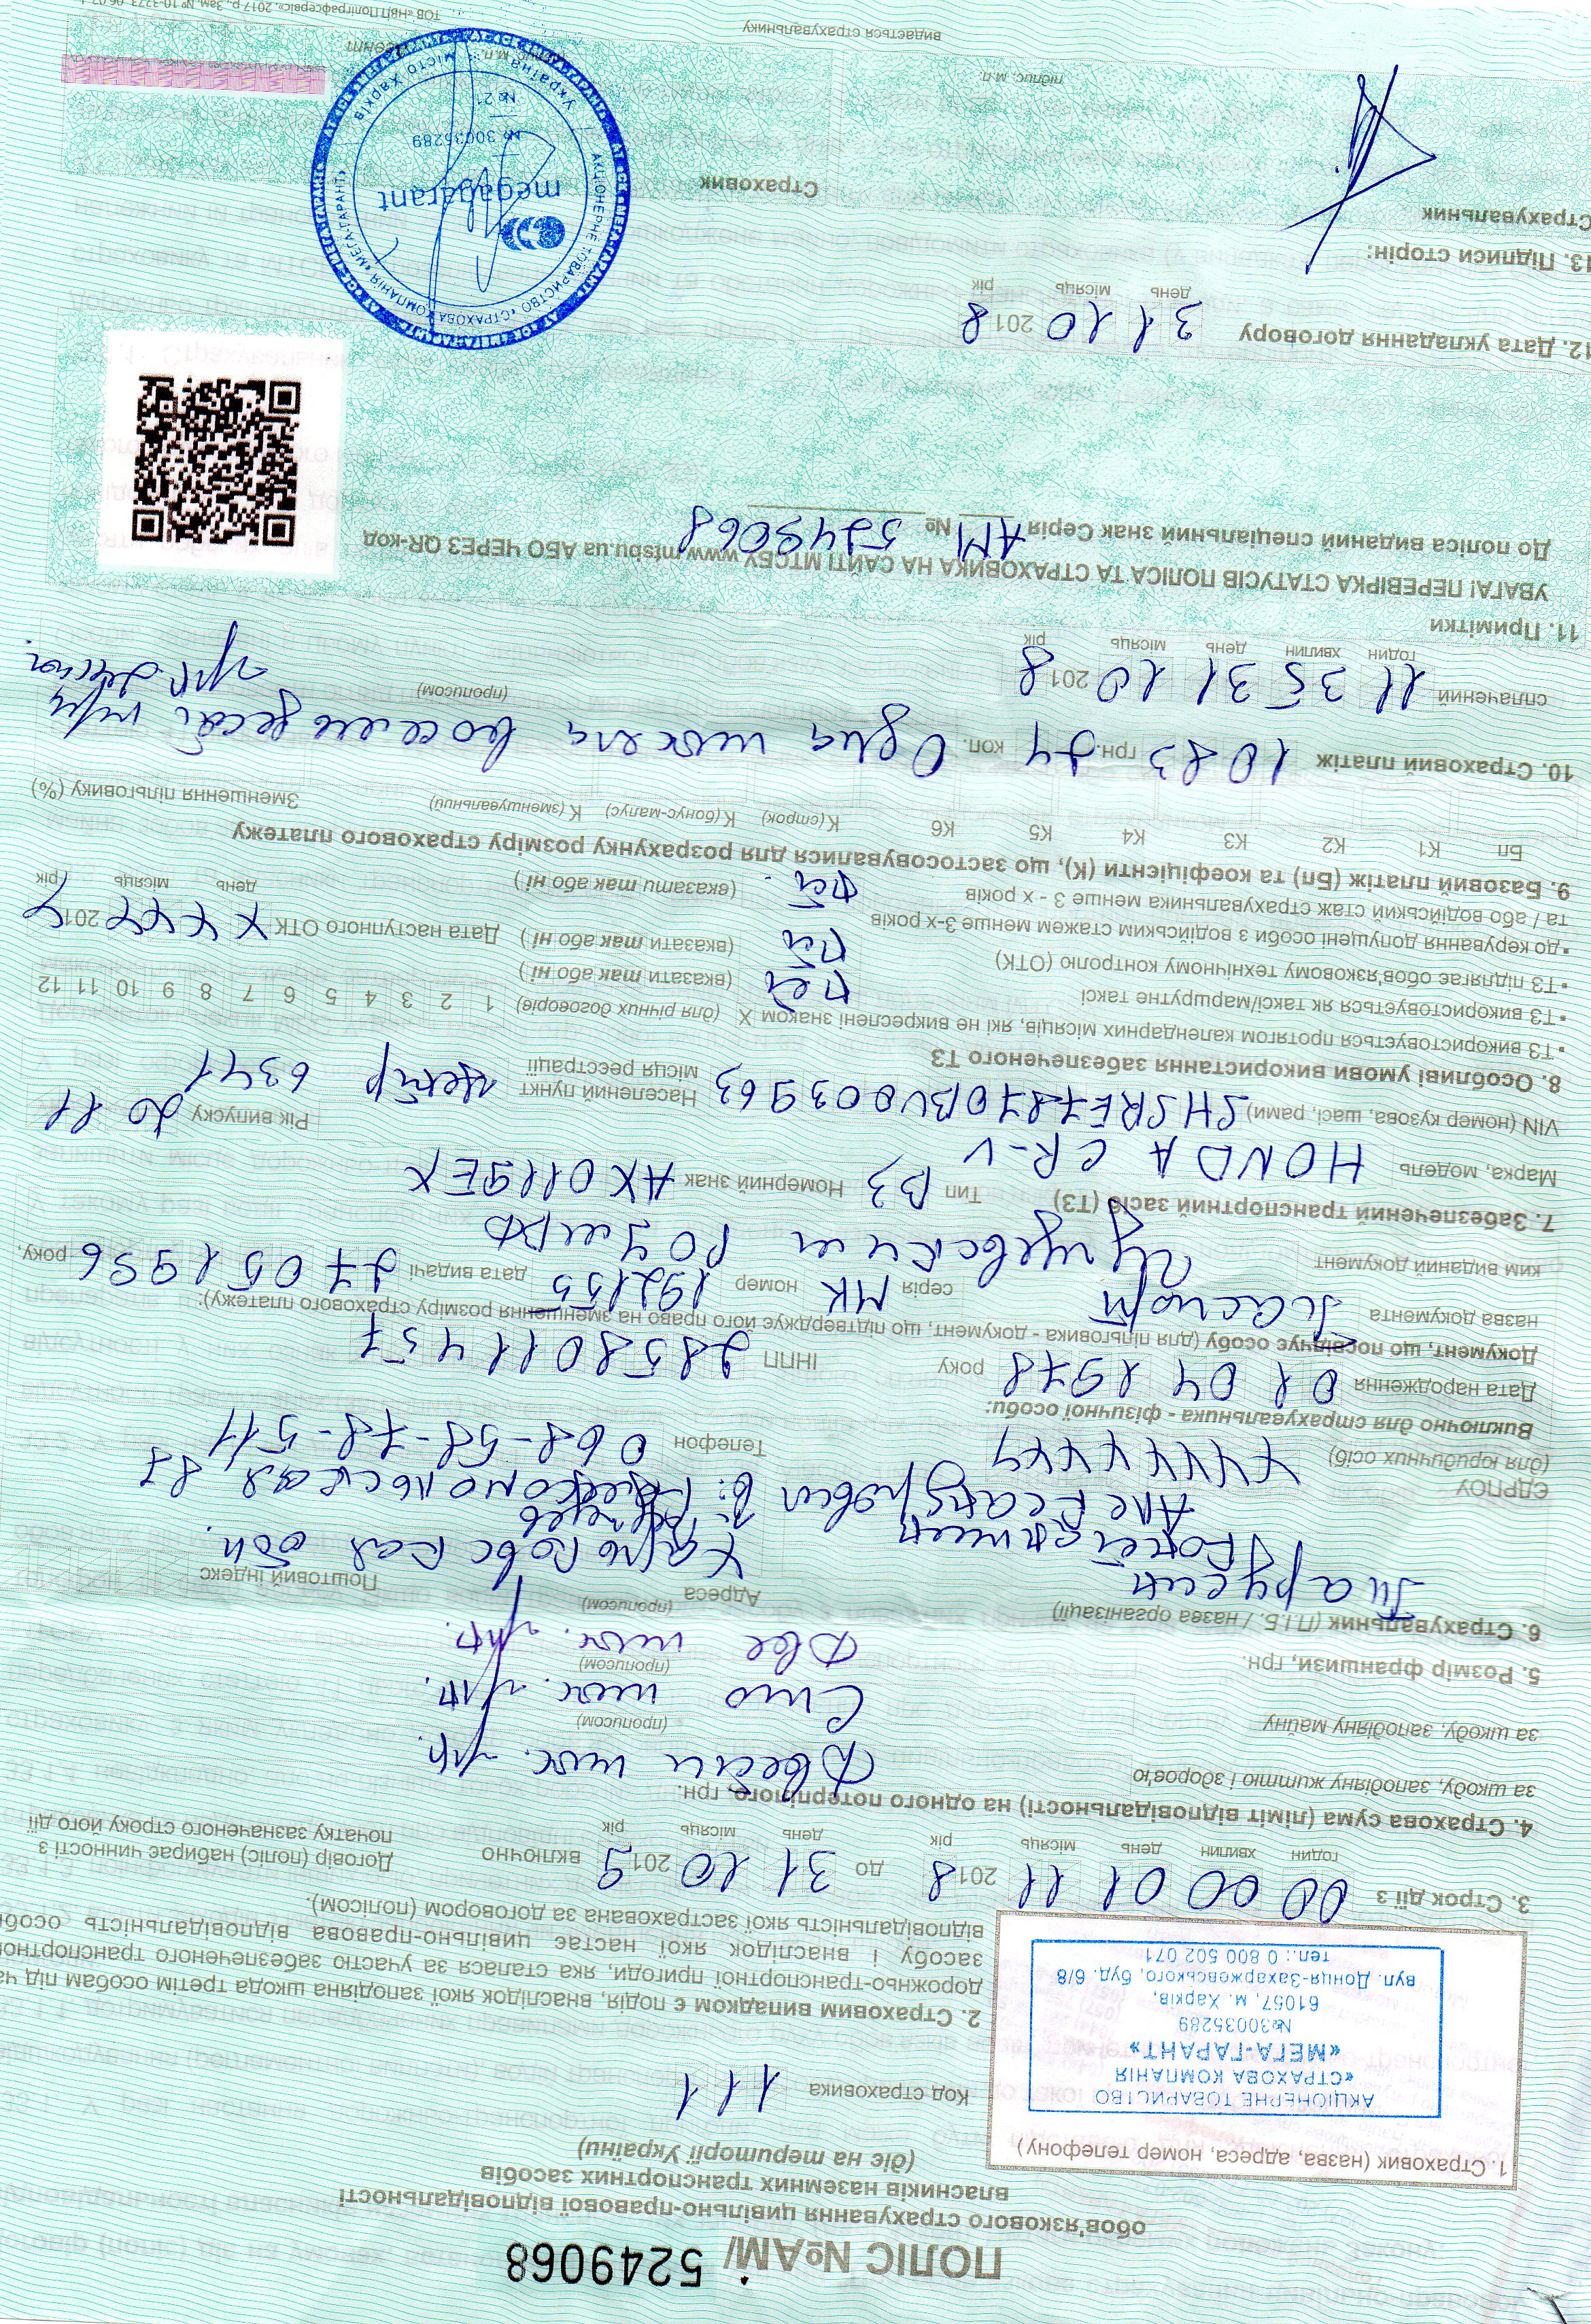 ПОЛІС №АМ/ 5249068
обов'язкового страхування цивільно-правової відповідальності
власників наземних транспортних засобів
(діє на території України)
1. Страховик (назва, адреса, номер телефону)
АКЦІОНЕРНЕ ТОВАРИСТВО
«СТРАХОВА КОМПАНІЯ
«МЕГА-ГАРАНТ»
№30035289
61057, м. Харків,
вул. Донця-Захаржевського, буд. 6/8
тел.: 0 800 502 071
Код страховика 111
2. Страховим випадком є подія, внаслідок якої заподіяна шкода третім особам під ча
дорожньо-транспортної пригоди, яка сталася за участю забезпеченого транспортно
засобу і внаслідок якої настає цивільно-правова відповідальність особ
відповідальність якої застрахована за договором (полісом).
3. Строк дії з 00 00 01 11 2018 до 31 10 2019 включно
годин хвилин день місяць рік день місяць рік
Договір (поліс) набирає чинності з
початку зазначеного строку його дії
4. Страхова сума (ліміт відповідальності) на одного потерпілого, грн.
за шкоду, заподіяну життю і здоров'ю Двести тыс. грн.
(прописом)
за шкоду, заподіяну майну Сто тыс. грн.
(прописом)
5. Розмір франшизи, грн. Две тыс. грн.
(прописом)
6. Страхувальник (П.І.Б. / назва організації)
Тарусин
Константин
Александрович
Адреса Поштовий індекс
Харьковская обл.
Комсомольская, 87
ЄДРПОУ
(для юридичних осіб)
Телефон 068-58-78-511
Виключно для страхувальника - фізичної особи:
Дата народження 01 04 1978 року ІНПП 2858011457
Документ, що посвідчує особу (для пільговика - документ, що підтверджує його право на зменшення розміру страхового платежу):
назва документа Паспорт серія МК номер 192155 дата видачі 27 05 1996 року,
ким виданий документ Чугуевским РОУМВД
7. Забезпечений транспортний засіб (ТЗ) Тип В3 Номерний знак АХ0119ЕХ
Марка, модель HONDA CR-V
Рік випуску 2011
VIN (номер кузова, шасі, рами) SHSRE7870BU003963 Населений пункт
місця реєстрації центр 6341
8. Особливі умови використання забезпеченого ТЗ
▪ТЗ використовується протягом календарних місяців, які не викреслені знаком X (для річних договорів) 1 2 3 4 5 6 7 8 9 10 11 12
▪ТЗ використовується як таксі/маршрутне таксі нет (вказати так або ні )
▪ТЗ підлягає обов'язковому технічному контролю (ОТК) нет (вказати так або ні ) Дата наступного ОТК 201
день місяць рік
▪до керування допущені особи з водійським стажем менше 3-х років
та / або водійський стаж страхувальника менше 3 - х років нет. (вказати так або ні )
9. Базовий платіж (Бп) та коефіцієнти (К), що застосовувалися для розрахунку розміру страхового платежу
Бп К1 К2 К3 К4 К5 К6 К (строк) К (бонус-малус) К (зменшувальний) Зменшення пільговику (%)
10. Страховий платіж 1083 грн. 24 коп. Одна тысяча восемьдесят три
грн. 24 коп.
(прописом)
сплачений 11 35 31 10 2018
годин хвилин день місяць рік
11. Примітки
УВАГА! ПЕРЕВІРКА СТАТУСІВ ПОЛІСА ТА СТРАХОВИКА НА САЙТІ МТСБУ www.mtsbu.ua АБО ЧЕРЕЗ QR-код
До поліса виданий спеціальний знак Серія АМ № 5249068
12. Дата укладання договору 31 10 2018
день місяць рік
13. Підписи сторін:
Страхувальник
Страховик
АКЦІОНЕРНЕ ТОВАРИСТВО «СТРАХОВА КОМПАНІЯ «МЕГА-ГАРАНТ»
megagarant
№ 30035289
№ 21
Україна місто Харків
підпис, м.п.
м.п.
агент
видається страхувальнику
ТОВ «НВП Поліграфсервіс», 2017 р., Зам. № 10-3273